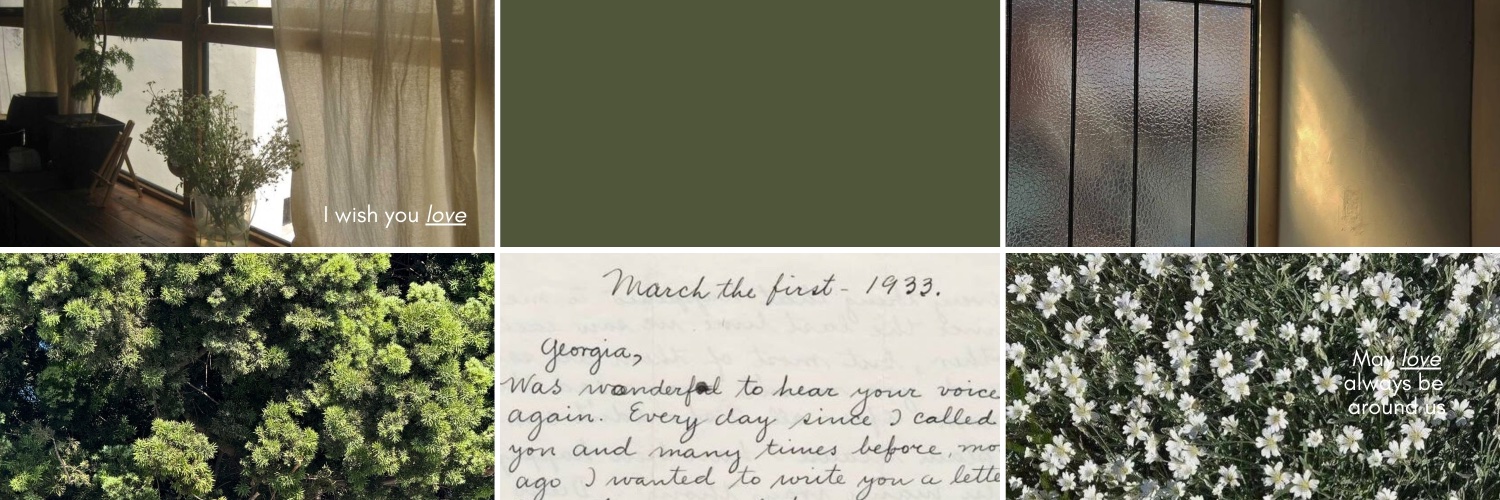 I wish you love
March the first - 1933.
Georgia,
Was wonderful to hear your voice
again. Every day since I called
you and many times before, mo
ago I wanted to write you a lette
May love
always be
around us